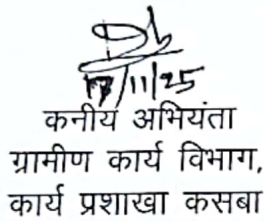 17/11/25
कनीय अभियंता
ग्रामीण कार्य विभाग,
कार्य प्रशाखा कसबा